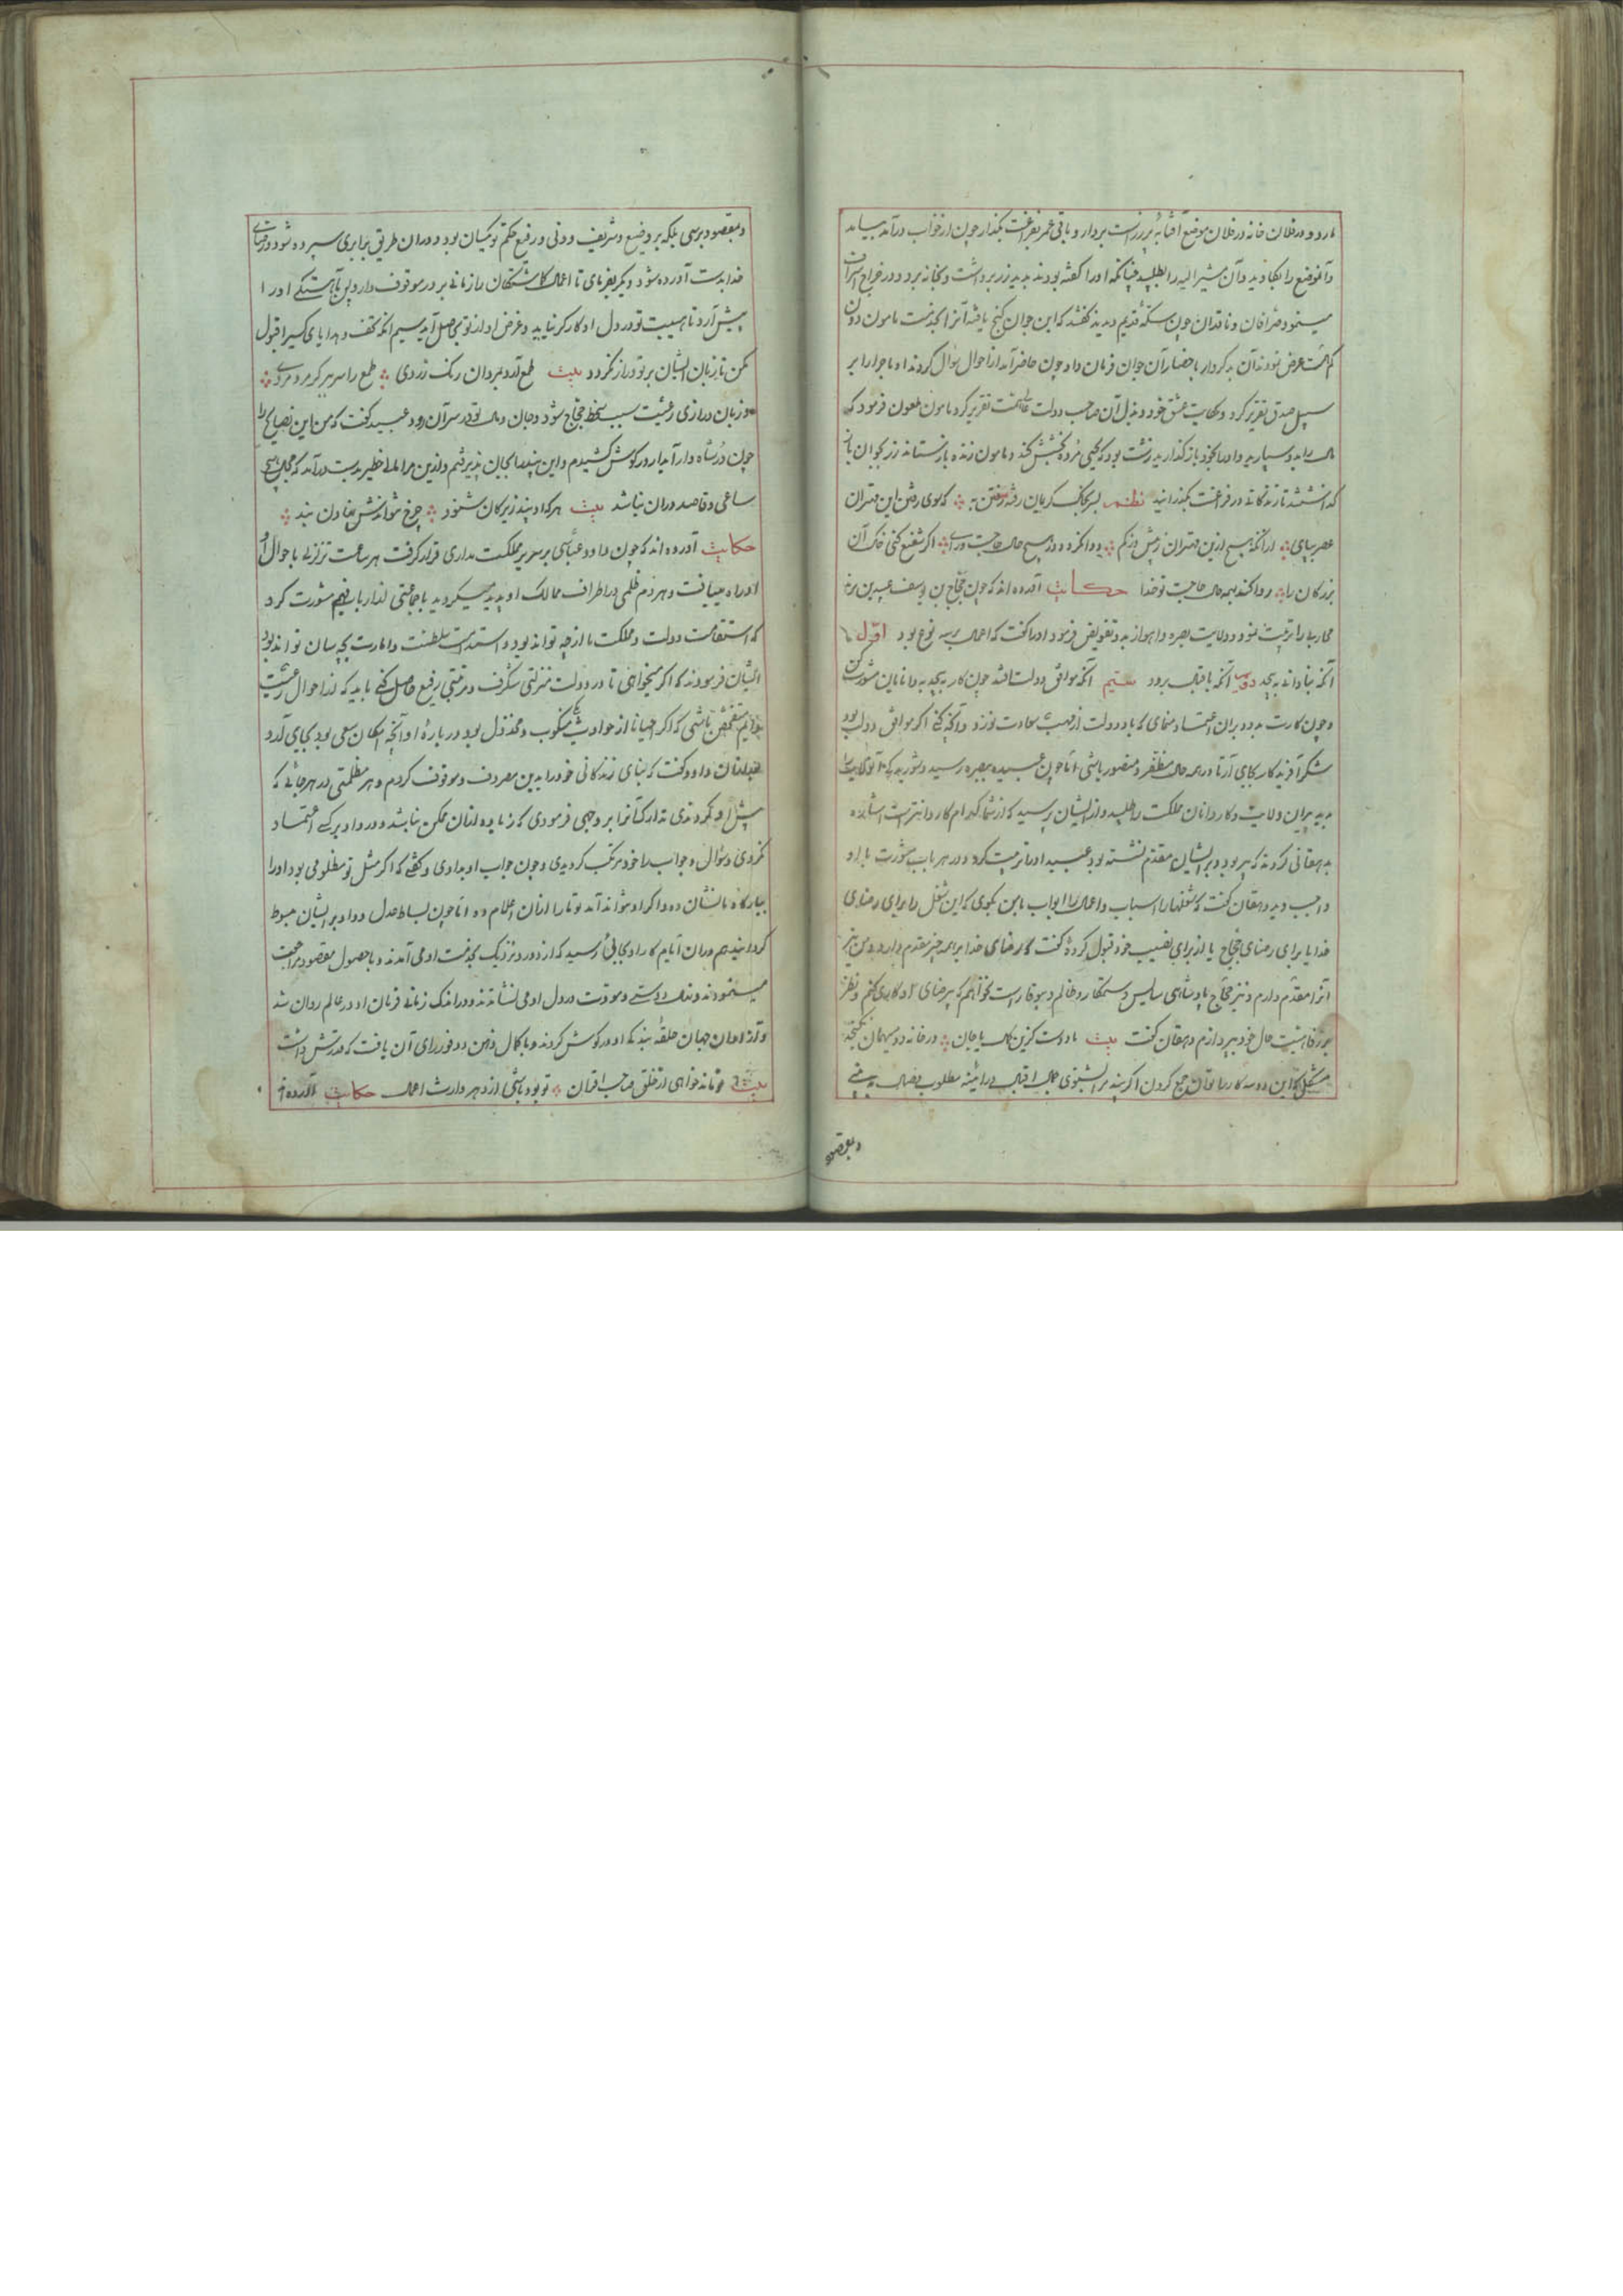 دارد و در فلان خانه در فلان موضع آفتابهٔ پر زر است بردار و باقی عمر بفراغت بگذار چون از خواب درآمد بیامد
و آنموضع را بکاوید و آن مشیر الیه را بطلبید چنانکه او را گفته بودند بدید زر برداشت و بخانه برد و در خراج اسراف
مینمود صرافان و ناقدان چون سکهٔ قدیم دیدند گفتند که این جوان گنج یافته آنرا بخدمت مامون دون
کم همت عرض نمودند آن بدکردار باحضار آن جوان فرمان داد چون حاضر آمد از احوال سوال کردند او ماجرا را بر
سبیل صدق تقریر کرد و حکایت عشق خود و بذل آن صاحب دولت تقریر کرد مامون ملعون فرمود که
مال را بدو سپارید و او را بخود بازگذارید زشت بود که یحیی مرده بخشش کند و مامون زنده بازستاند زر بجوان
که داشتند تا زندگانی در فراغت بگذرانید نظم بر خاک کریمان رفته رفتن به که بوی رفتن این مهتران
عصر بپای از آنکه هیچ ازین مهتران روا نکردد هیچ حال حاجت و رای اگر شفیع کنی خاک آن
بزرگان را روا کند همه حال حاجت تو خدا حکایت آورده اند که چون حجاج بن یوسف عبید بن
محارب را تربیت نمود و ولایت بصره و اهواز بدو تفویض فرمود او را گفت که اعمال بر سه نوع بود اول
آنکه بنادانی بپیچد دوم آنکه باقبال برود سیم آنکه موافق دولت افتد چون کار بپیچد با دانایان مشورت کن
و چون کارت برود بران اعتماد منمای که باد دولت از مهب سعادت نوزد و آنچه کنی اگر موافق دولت بود
شکر آفریدگار بجای آر تا در همه حال مظفر و منصور باشی اما چون عبید ببصره رسید
پیران ولایت و کاردانان مملکت را طلبید و از ایشان پرسید که از شما کدام کاردانترست اشارت
بدهقانی کردند که پیر بود و بر ایشان مقدم نشسته بود عبید او را تربیت کرد و در هر باب مشورت با او
واجب دید دهقان گفت که شغلها را اسباب و اعمال را ابواب با من بگوی که این شغل را برای رضای
خدا یا برای رضای حجاج یا از برای نصیب خود قبول کردهٔ گفت که رضای خدا بر همه چیز مقدم دارد و من نیز
آنرا مقدم دارم و نیز حجاج پادشاهی سایس و ستمکار و ظالم و بیوقار است نخواهم که بیرضای او کاری کنم و نظر
بر رفاهیت حال خود بپردازم دهقان گفت بیت یا دوست گزین کمال یا جان در خانه دو میهمان نگنجد
مشکل که این دو سه کار را توان جمع کردن اگر پند مرا بشنوی جمال اقبال در آئینه مطلوب بینی
و بمقصود
و بمقصود برسی بلکه بر وضیع و شریف و دنی و رفیع حکم تو یکسان بود و دران طریق برابری سپرده شود و رضای
خدا بدست آورده شود دیگر بفرمای تا اعمال گماشتگان را زمانی بر در موقوف دارد پس بآهستگی او را
پیش آرد تا هیبت تو در دل او کارگر نیاید و غرض او از تو بحاصل آید سیم آنکه تحف و هدایای کسی را قبول
مکن تا زبان ایشان بر تو دراز نگردد بیت طمع آرد بمردان رنگ زردی طمع را سر ببر گر مرد مردی
و زبان درازی رعیت سبب سخط حجاج شود و جان و مال تو در سر آن رود عبید گفت که من این نصایح را
چون در شاه وار آبدار در گوش کشیدم و این پندها بجان پذیرفتم
ساعی و قاصد دران نباشد بیت هر که او پند زیرکان شنود چرخ نتواندش نهادن بند
حکایت آورده اند که چون داود عباسی بر سریر مملکت مداری قرار گرفت هر ساعت تزلزلی باحوال او
او راه مییافت و هر دم ظلمی در اطراف ممالک او پدید میگردید با جماعتی از ارباب فهم مشورت کرد
که استقامت دولت و مملکت ما از چه تواند بود و استدامت سلطنت و امارت بچه سان تواند بود
ایشان فرمودند که اگر میخواهی تا در دولت منزلتی شگرف و مرتبتی رفیع حاصل کنی باید که از احوال رعیت
متفحص باشی که اگر احیانا از حوادث منکوب و مخذول بود در بارهٔ او آنچه امکان سعی بود بجای آرد
بعد ازان داود گفت که بنای زندگانی خود را بدین مصروف و موقوف کردم و هر مظلمتی در هر جائی که
پیش او نمودندی تدارک آنرا بر وجهی فرمودی که زیاده ازان ممکن نباشد و در داد بر کسی اعتماد
نکردی و سوال و جواب را خود مرتکب گردیدی و چون جواب او بدادی و گفتی که اگر مثل تو مظلومی بود او را
ببارگاه ما نشان ده و اگر او نتواند آمد تو ما را ازان اعلام ده اما چون بساط عدل و داد بر ایشان مبسوط
گردانید هم دران ایام کار او بجائی رسید که از دور و نزدیک بخدمت او می آمدند و با حصول مقصود مراجعت
مینمودند و نهال دوستی و مودت در دل او می نشاندند و در اندک زمانی فرمان او در عالم روان شد
و آزادوان جهان حلقه بندگی او در گوش کردند و با کمال ذهن و وفور رای آن یافت که قدرتش داشت
بیت تو بود باشی از دهر وارث اعمال حکایت آورده اند